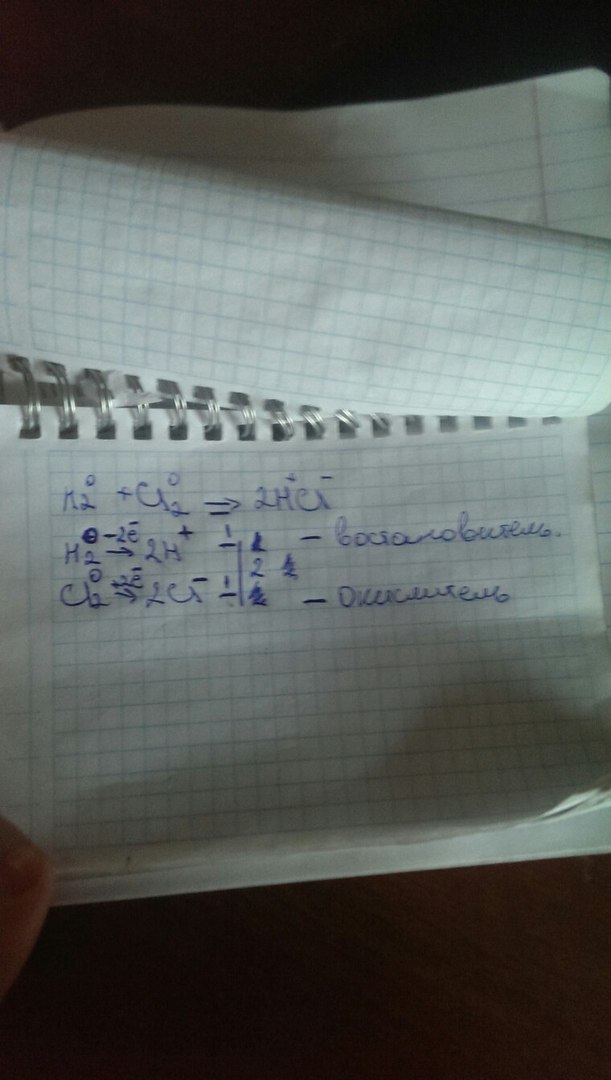 H₂⁰ + Cl₂⁰ => 2H⁺Cl⁻
H₂⁰ -2ē → 2H⁺ 1 – востановитель.
2
Cl₂⁰ +2ē → 2Cl⁻ 1 – Окислитель